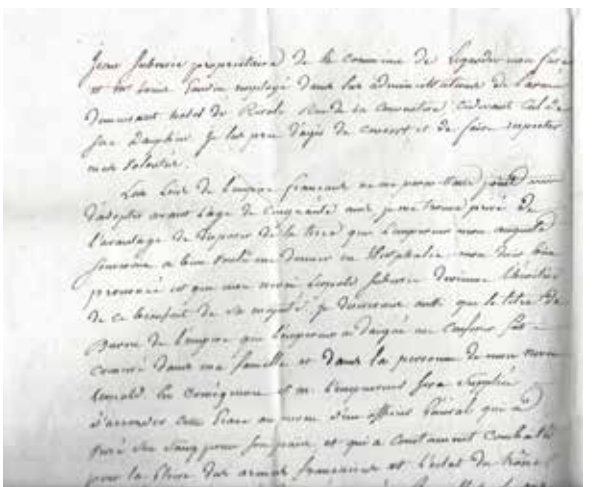 Jean Subervie propriétaire de la commune de Ligardes mon frère
et Mr Louis employé dans les administrations de l'armée
Demeurant hotel de Rue de la Convention cidevant Cul de
Sac Dauphin Je les prie d'agir de concert et de faire respecter
mes volontés.
Les Loix de l'empire français ne me permettant point
d'adopter avant l'age de Cinquante ans je me trouve privé de
l'avantage de disposer de la terre que l'empereur mon auguste
souverain a bien voulu me donner en Westphalie. mon
est que mon neveu Leopold Subervie devienne l'heritier
de ce bienfait de sa majesté. Je desirerais aussi que le titre de
Baron de l'empire que l'empereur a daigné me Conferer fut
dans ma famille et dans la personne de mon neveu
Leopold. En Conséquence S. M. l'empereur sera Supplié
d'accorder cette Grace au neveu d'un officier Général qui a
versé son Sang pour son pays et qui a Constament Combattu
pour la Gloire des armes françaises et l'eclat du trône